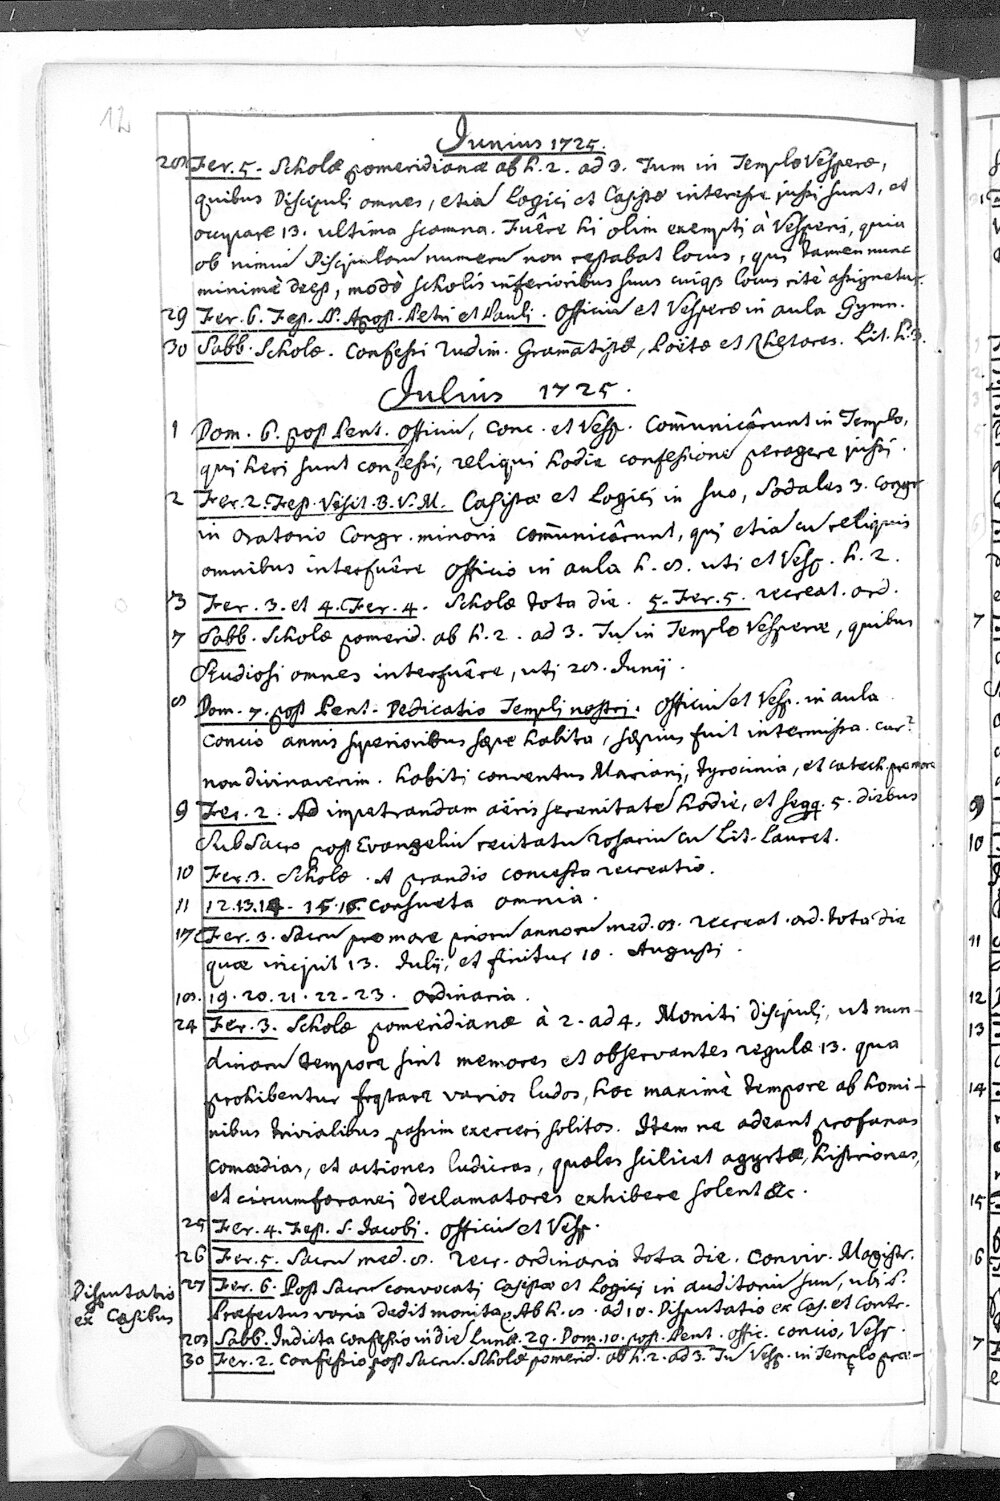 12
Junius 1725.
28 Fer. 5. Scholæ pomeridianæ ab h. 2. ad 3. Tum in Templo Vesperæ,
quibus Discipuli omnes, etiã Logici et Casistæ interesse jussi sunt, et
occupare 13. ultima scamna. Fuêre hi olim exempti à Vesperis, quia
ob nimiũ Discipulorũ numerũ non restabat locus, qui tamen nunc
minimè deest, modò scholis inferioribus suus cuiqs locus ritè assignetur.
29 Fer. 6. Fest. SS. Apost. Petri et Pauli. Officiũ et Vesperæ in aula Gymn.
30 Sabb. Scholæ. Confessi Rudim. Gram̃atistæ, Poëtæ et Rhetores. Lit. h. 3.
Julius 1725.
1 Dom. 6. post Pent. Officiũ, Conc. et Vesp. Com̃unicârunt in Templo,
qui heri sunt confessi, reliqui hodie confessionẽ peragere jussi.
2 Fer. 2. Fest. Visit. B. V. M. Casistæ et Logici in suo, Sodales 3. Congr.
in oratorio Congr. minoris com̃unicârunt, qui etiã cũ reliquis
omnibus interfuêre officio in aula h. 8. uti et Vesp. h. 2.
3 Fer. 3. et 4. Fer. 4. Scholæ tota die. 5. Fer. 5. recreat. ord.
7 Sabb. Scholæ pomerid. ab h. 2. ad 3. Tũ in Templo Vesperæ, quibus
Studiosi omnes interfuêre, uti 28. Junij.
8 Dom. 7. post Pent. Dedicatio Templi nostri. Officiũ et Vesp. in aula
Concio annis superioribus sæpe habita, sæpius fuit intermissa. cur?
non divinaverim. habiti conventus Mariani, tyrocinia, et catech. pro more
9 Fer. 2. Ad impetrandam aëris serenitatẽ hodie, et seqq. 5. diebus
sub Sacro post Evangeliũ recitatũ rosariũ cũ Lit. Lauret.
10 Fer. 3. Scholæ. A prandio concessa recreatio.
11 12. 13. 14. 15. 16. Consueta omnia.
17 Fer. 3. Sacrũ pro more priorũ annorũ med. 8. recreat. ord. tota die
quæ incipit 13. Julij, et finitur 10. Augusti.
18. 19. 20. 21. 22. 23. ordinaria.
24 Fer. 3. Scholæ pomeridianæ à 2. ad 4. Moniti discipuli, ut nun-
dinarũ tempore sint memores et observantes regulæ 13. qua
prohibentur freqtare varios ludos, hoc maximè tempore ab homi-
nibus trivialibus passim exerceri solitos. Item ne adeant profanas
comœdias, et actiones ludicras, quales scilicet agyrtæ, histriones,
et circumforanei declamatores exhibere solent &c.
25 Fer. 4. Fest. S. Jacobi. Officiũ et Vesp.
26 Fer. 5. Sacrũ med. 8. recr. ordinaria tota die. Conviv. Magistr.
27 Fer. 6. Post Sacrũ convocati Casistæ et Logici in auditoriũ suũ, ubi P.
Præfectus varia dedit monita. Ab h. 8. ad 10. Disputatio ex Cas. et Contr.
Disputatio
ex Casibus
28 Sabb. Indicta confessio in diẽ Lunæ. 29. Dom. 10. post. Pent. offic. concio, Vesp.
30 Fer. 2. Confessio post Sacrũ. Scholæ pomerid. ab h. 2. ad 3. Tũ Vesp. in Templo præ-